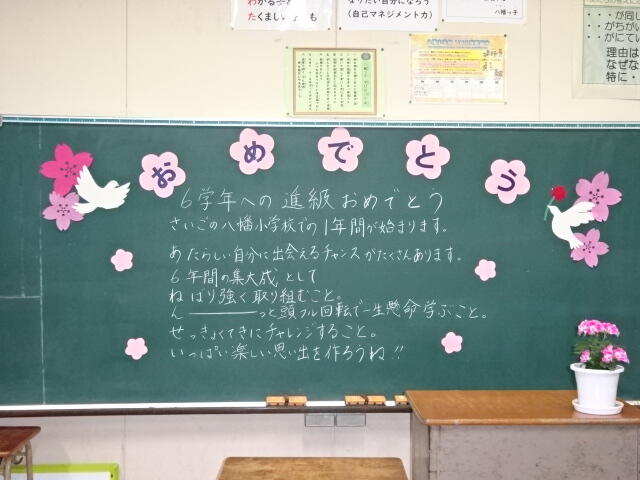 わかる子ども
たくましい子ども
なりたい自分になろう
(自己マネジメント力)
八幡っ子
・・・が同じ
・・がちがい
・・がにてい
理由は
なぜな
特に・
おめでとう
6学年への進級おめでとう
さいごの八幡小学校での1年間が始まります。
あたらしい自分に出会えるチャンスがたくさんあります。
6年間の集大成として
ねばり強く取り組むこと。
ん―――っと頭フル回転で一生懸命学ぶこと。
せっきょくてきにチャレンジすること。
いっぱい楽しい思い出を作ろうね!!